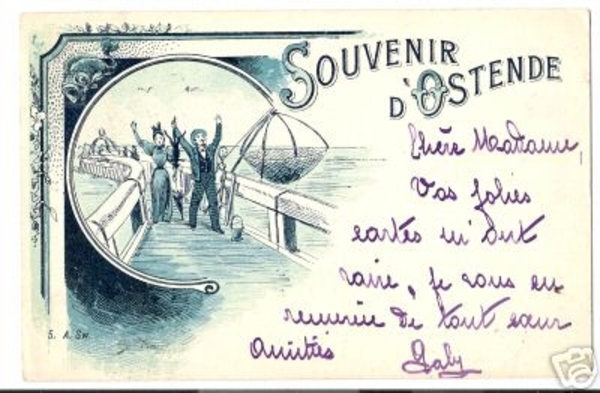 SOUVENIR
D'OSTENDE
Chère Madame,
Vos jolies
cartes m'ont
ravie, je vous en
remercie de tout cœur
Amitiés Gaby
S. A. SW.